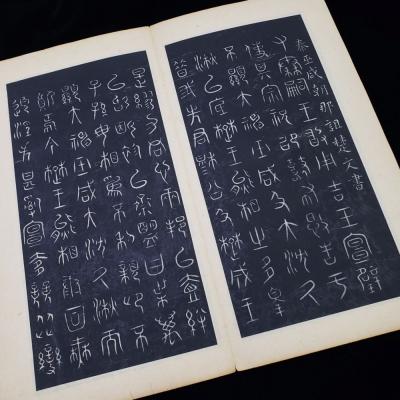 秦巫咸朝那詛楚文書
又秦嗣王敢用吉玉宣璧
使其宗祝邵鼛布憼告于
不顯大神巫咸及大沈久
湫以底楚王熊相之多辠
昔我先君穆公及楚成王
是繆力同心兩邦以壹絆
以婚姻袗以齋盟曰枼萬
子孫毋相為不利親卬不
顯大神巫咸大沈久湫而
質焉今楚王熊相康回無
道淫失甚亂宣奓競從變